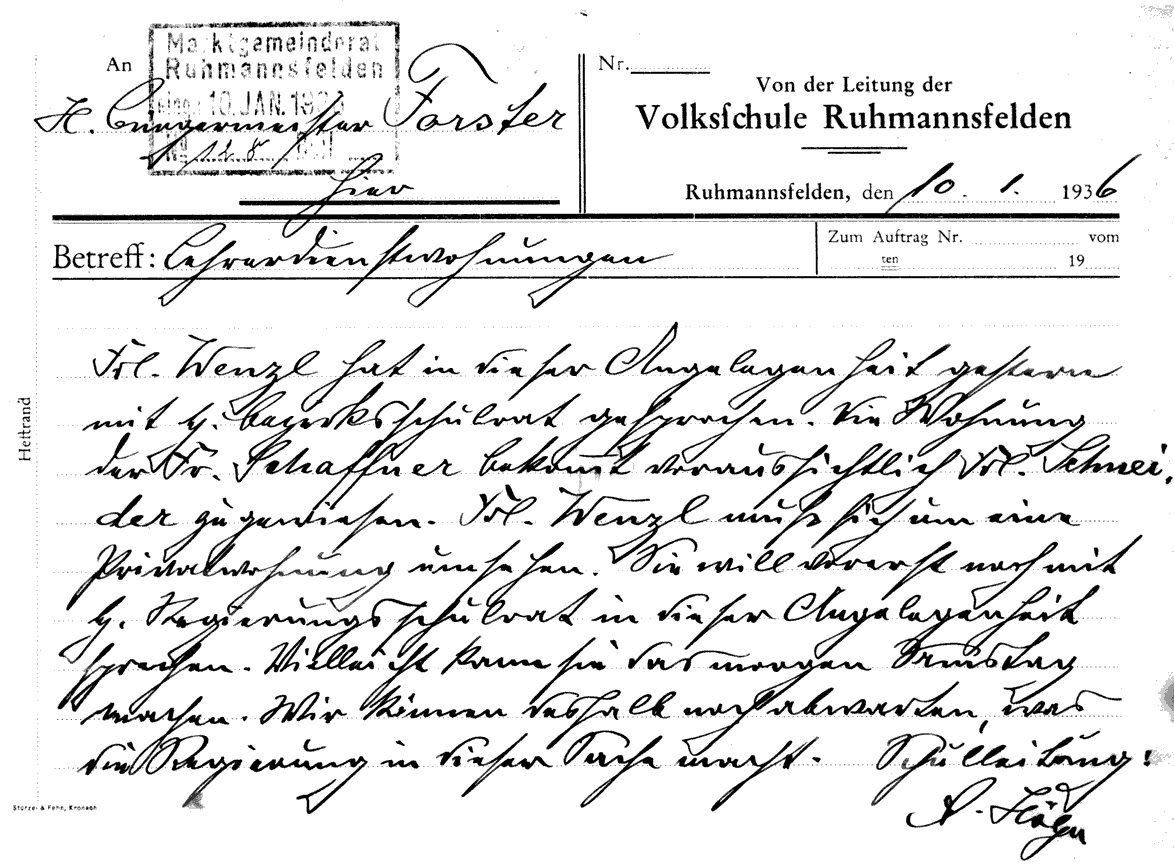 An
Marktgemeinderat
Ruhmannsfelden
eing. 10. JAN. 1936
Nº 128
H. Bürgermeister Forster
hier
Nr.
Von der Leitung der
Volksſchule Ruhmannsfelden
Ruhmannsfelden, den 10. 1. 1936
Betreff: Lehrerdienstwohnungen
Zum Auftrag Nr. vom
ten 19
Heftrand
Frl. Wenzl hat in dieser Angelegenheit gestern
mit H. Bezirksschulrat gesprochen. Die Wohnung
der Fr. Schaffner bekomt voraussichtlich Frl. Schnei-
der zugewiesen. Frl. Wenzl muß sich um eine
Privatwohnung umsehen. Sie will vorerst noch mit
H. Regierungsschulrat in dieser Angelegenheit
sprechen. Vielleicht kann sie das morgen Samstag
machen. Wir können deshalb noch abwarten, was
die Regierung in dieser Sache macht. Schulleitung:
A. Högn
Stürzel & Fehn, Kronach